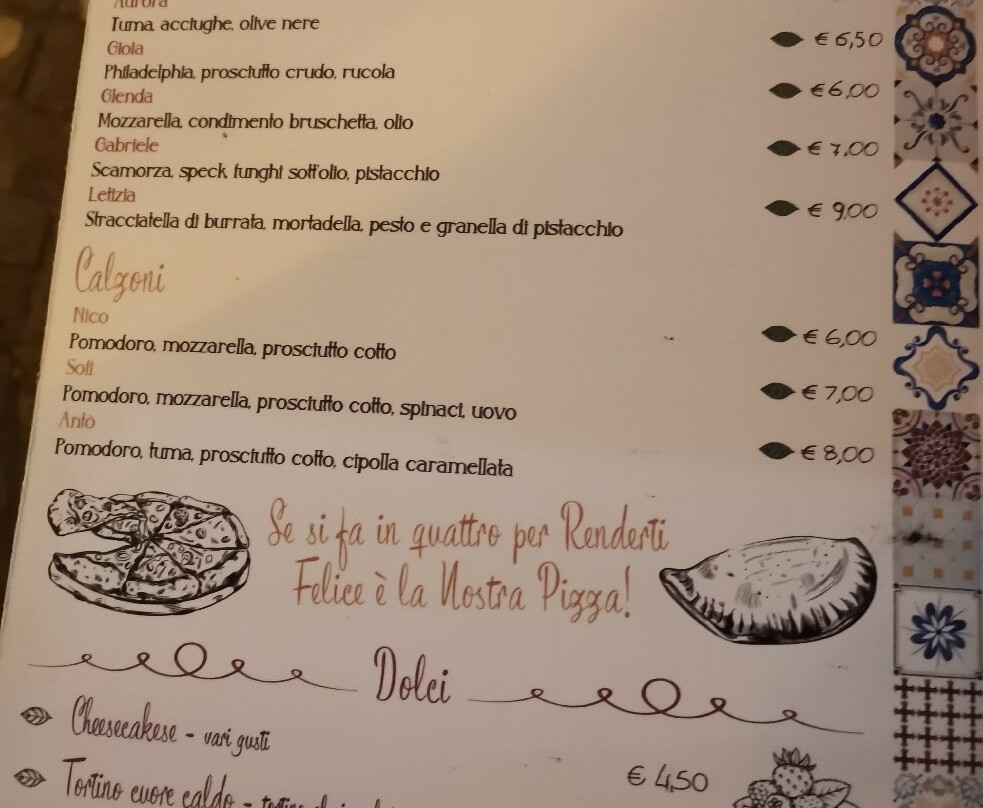 Aurora
Tuma, acciughe, olive nere € 6,50
Gioia
Philadelphia, prosciutto crudo, rucola € 6,00
Glenda
Mozzarella, condimento bruschetta, olio € 7,00
Gabriele
Scamorza, speck, funghi sott'olio, pistacchio € 9,00
Letizia
Stracciatella di burrata, mortadella, pesto e granella di pistacchio
Calzoni
Nico
Pomodoro, mozzarella, prosciutto cotto € 6,00
Sofi
Pomodoro, mozzarella, prosciutto cotto, spinaci, uovo € 7,00
Antò
Pomodoro, tuma, prosciutto cotto, cipolla caramellata € 8,00
Se si fa in quattro per Renderti
Felice è la Nostra Pizza!
Dolci
Cheesecakese - vari gusti
Tortino cuore caldo - € 4,50